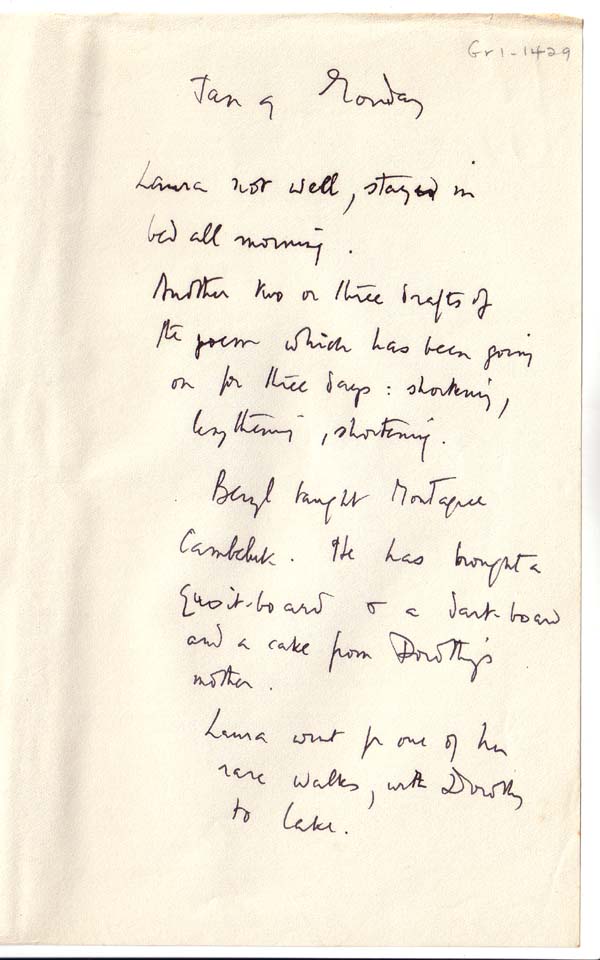 Gr1-1429
Jan 9 Monday
Laura not well, stayed in
bed all morning.
Another two or three drafts of
the poem which has been going
on for three days: shortening,
lengthening, shortening.
Beryl taught Montague
. He has brought a
quoit-board & a dart-board
and a cake from Dorothy's
mother.
Laura went for one of her
rare walks, with Dorothy
to lake.